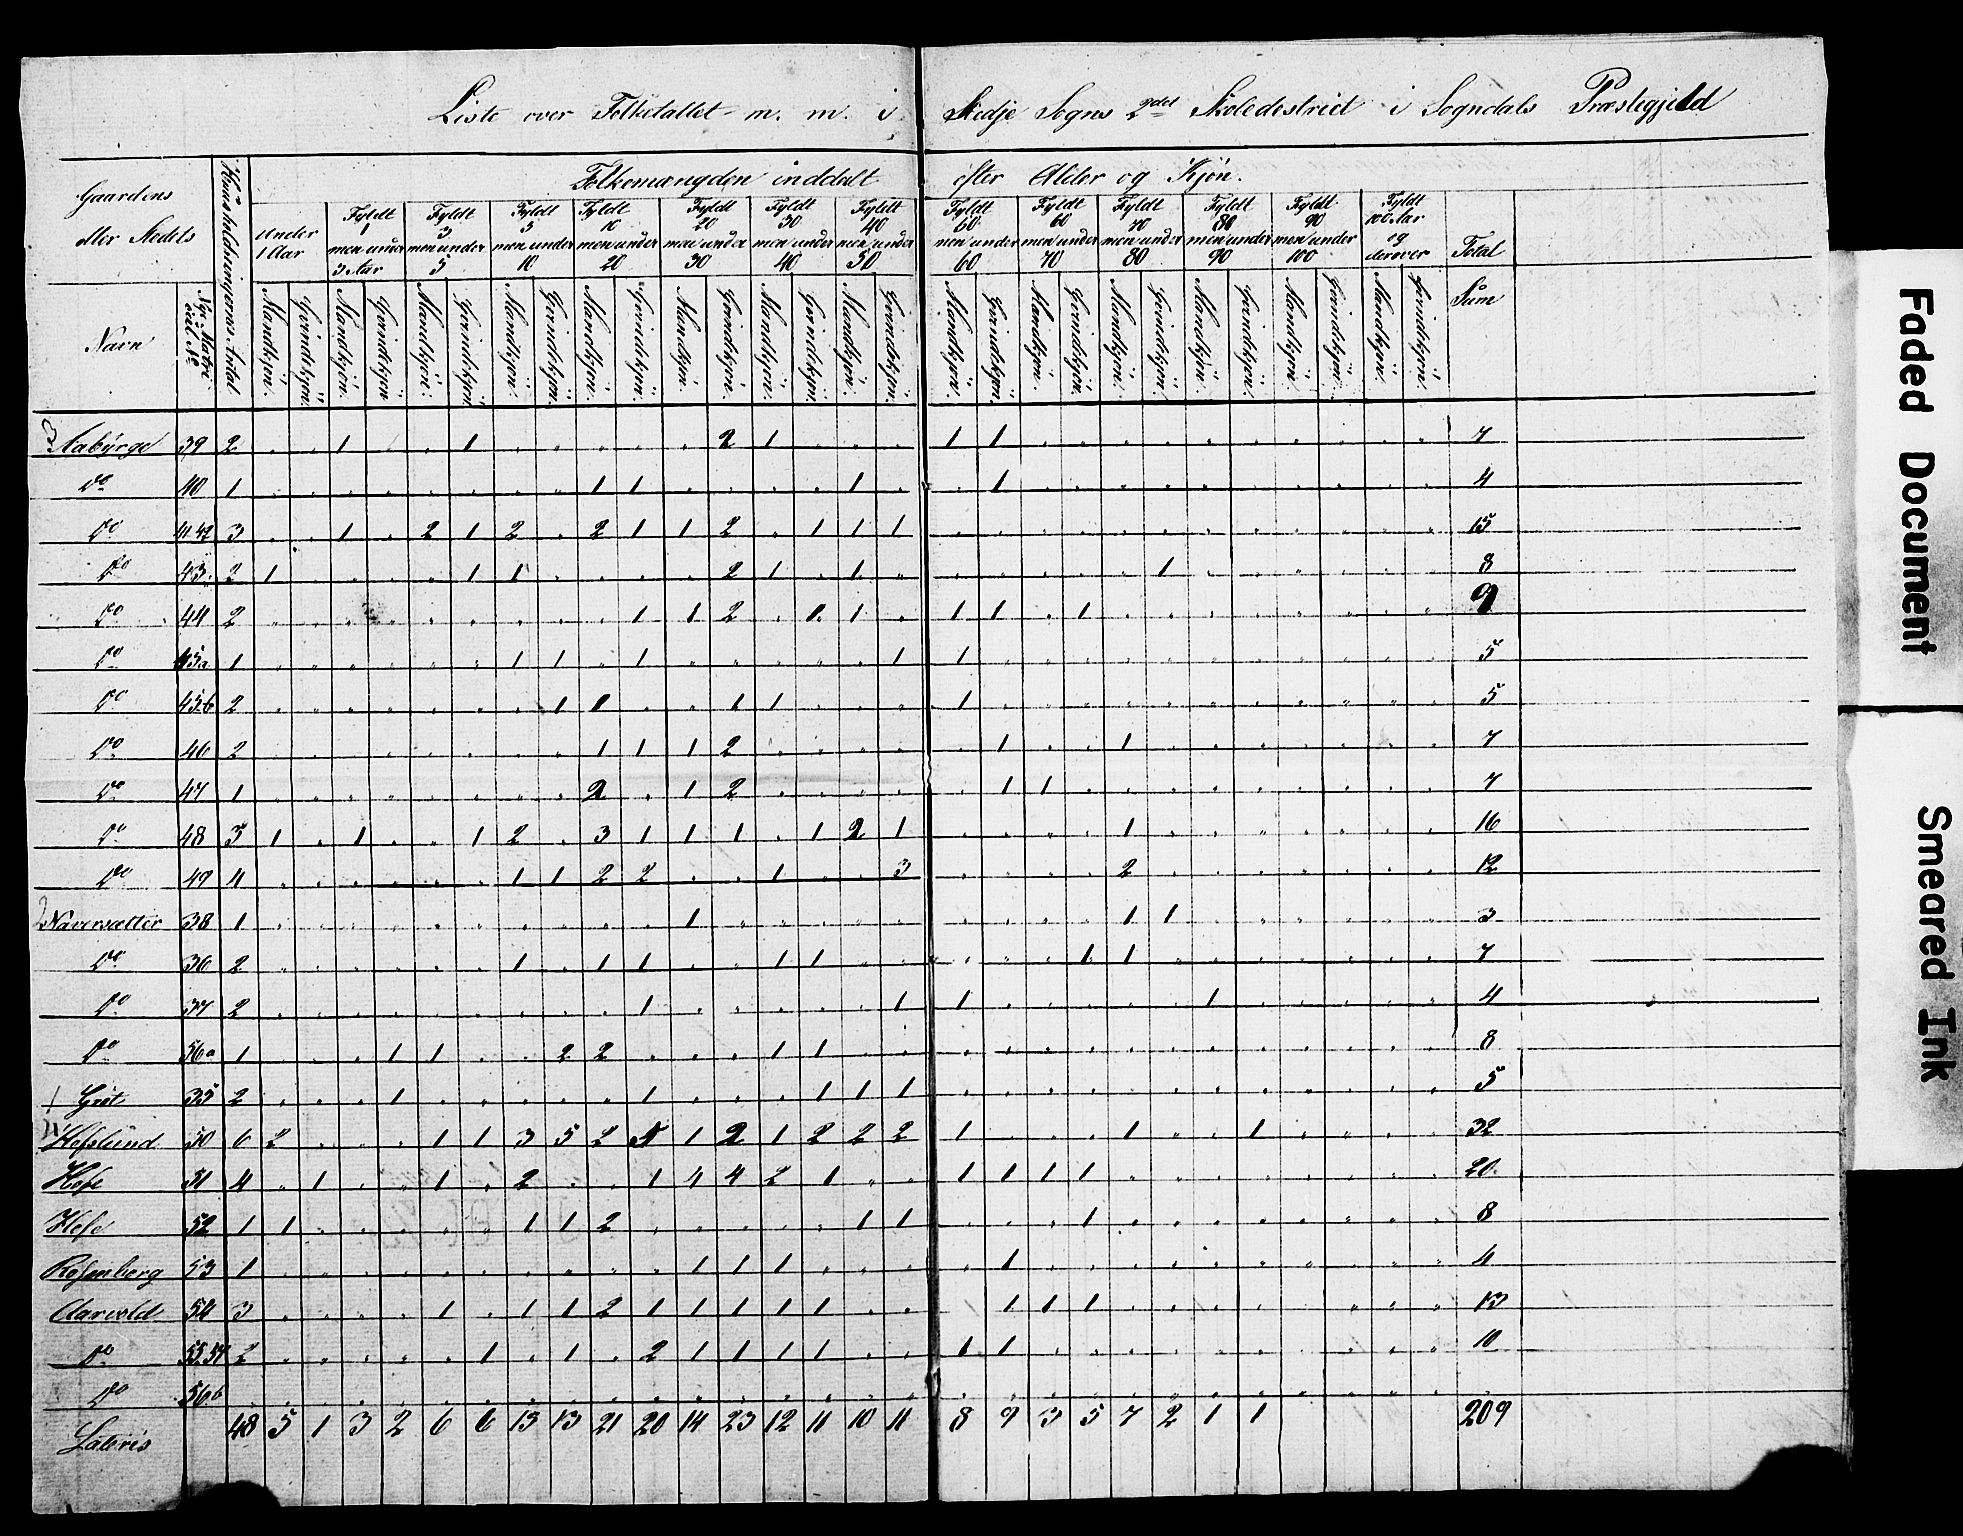 Liste over Folketallet m. m. i Stedje Sogns 2det Skoledestrict i Sogndals Præstegjeld
Folkemængden inddelt efter Alder og Kjön.
Gaardens eller Stedets Navn | Nye Matricul No | Huusholdningernes Antal | Under 1 Aar | Fyldt 1 men under 3 Aar | Fyldt 3 men under 5 | Fyldt 5 men under 10 | Fyldt 10 men under 20 | Fyldt 20 men under 30 | Fyldt 30 men under 40 | Fyldt 40 men under 50 | Fyldt 50 men under 60 | Fyldt 60 men under 70 | Fyldt 70 men under 80 | Fyldt 80 men under 90 | Fyldt 90 men under 100 | Fyldt 100 Aar og derover | Total Sum
Mandkjön. Qvindekjön. Mandkjön. Qvindekjön. Mandkjön. Qvindekjön. Mandkjön. Qvindekjön. Mandkjön. Qvindekjön. Mandkjön. Qvindekjön. Mandkjön. Qvindekjön. Mandkjön. Qvindekjön. Mandkjön. Qvindekjön. Mandkjön. Qvindekjön. Mandkjön. Qvindekjön. Mandkjön. Qvindekjön. Mandkjön. Qvindekjön. Mandkjön. Qvindekjön.
3 Aabÿrge 39 2 . . 1 . . 1 . . . . . 2 1 . . . 1 1 . . . . . . . . . . 7
Do 40 1 . . . . . . . . 1 1 . . . . 1 . . 1 . . . . . . . . . . 4
Do 41.42 3 . . 1 . 2 1 2 . 2 1 1 2 . 1 1 1 . . . . . . . . . . . . 15
Do 43. 2 1 . . . . 1 1 . . . . 2 1 . 1 . . . . . . 1 . . . . . . 8
Do 44 2 . . . . . . . . . 1 1 2 . 1 1 . 1 1 . 1 . . . . . . . . 9
Do 45a 1 . . . . . . 1 1 . 1 . . . . . 1 1 . . . . . . . . . . . 5
Do 45b 2 . . . . . . . 1 1 . . 1 1 . . . 1 . . . . . . . . . . . 5
Do 46 2 . . . . . . . . 1 1 1 2 . . . . . 1 . . 1 . . . . . . . 7
Do 47 1 . . . . . . . . 2 . 1 2 . . . . . 1 1 . . . . . . . . . 7
Do 48 5 1 . 1 . . 1 2 . 3 1 1 1 . 1 2 1 . . . . 1 . . . . . . . 16
Do 49 4 . . . . . . 1 1 2 2 . . 1 . . 3 . . . . 2 . . . . . . . 12
2 Naversætter 38 1 . . . . . . . . . . 1 . . . . . . . . . 1 1 . . . . . . 3
Do 36 2 . . . . . . 1 . 1 1 . . 1 1 . . . . . 1 1 . . . . . . . 7
Do 37 2 . . . . . . . . . 1 . . . . . 1 1 . . . . . 1 . . . . . 4
Do 56a 1 . . . 1 1 . . 2 2 . . . 1 1 . . . . . . . . . . . . . . 8
1 35 2 . . . 1 . . . . . 1 . . . 1 1 1 . . . . . . . . . . . . 5
4 50 6 2 . . . 1 1 3 5 2 5 1 2 1 2 2 2 1 . . . 1 . . 1 . . . . 32
51 4 . 1 . . 1 . 2 . . 1 4 4 2 1 . . 1 1 1 1 . . . . . . . . 20
52 1 1 . . . . . 1 1 2 . . . . . 1 1 . . . 1 . . . . . . . . 8
53 1 . . . . . . . . . . 1 1 1 . . . . 1 . . . . . . . . . . 4
Aarvold 54 3 . . . . 1 . 1 1 2 1 1 1 1 1 . . . 1 1 1 . . . . . . . . 13
Do 55.57 2 . . . . . 1 . 1 . 2 1 1 1 1 . . 1 1 . . . . . . . . . . 10
Do 56b . . . . . . . . . . . . . . . . . . . . . . . . . . . .
Lateris 48 5 1 3 2 6 6 13 13 21 20 14 23 12 11 10 11 8 9 3 5 7 2 1 1 209
Faded Document
Smeared Ink